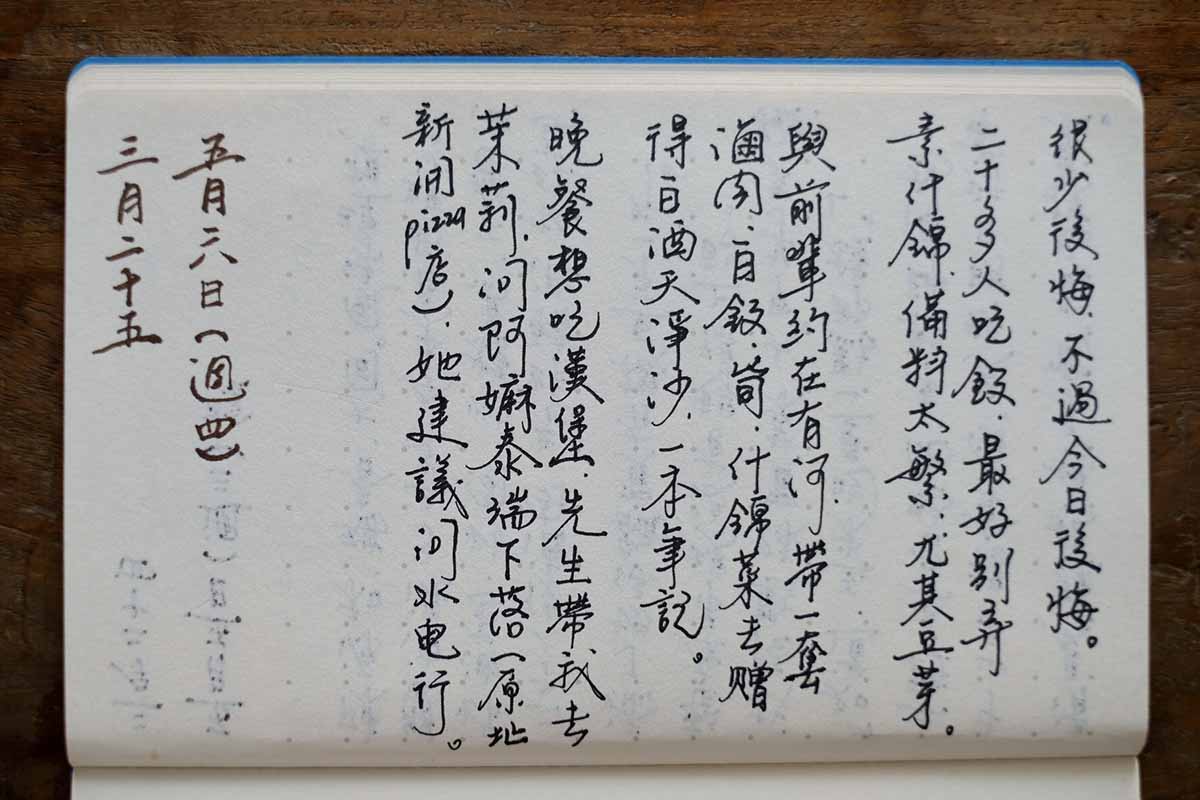 很少後悔,不過今日後悔。
二十多人吃餃,最好別弄
素什錦,備料太繁,尤其豆芽。
與前輩約在有河,帶一套
滷肉、白餃、筍、什錦菜去贈
得白酒天淨沙,一本
晚餐想吃漢堡,先生帶我去
茉莉,問阿嬤泰端下落(原址
新開pizza店),她建議問水电行。
五月六日(週四)
三月二十五